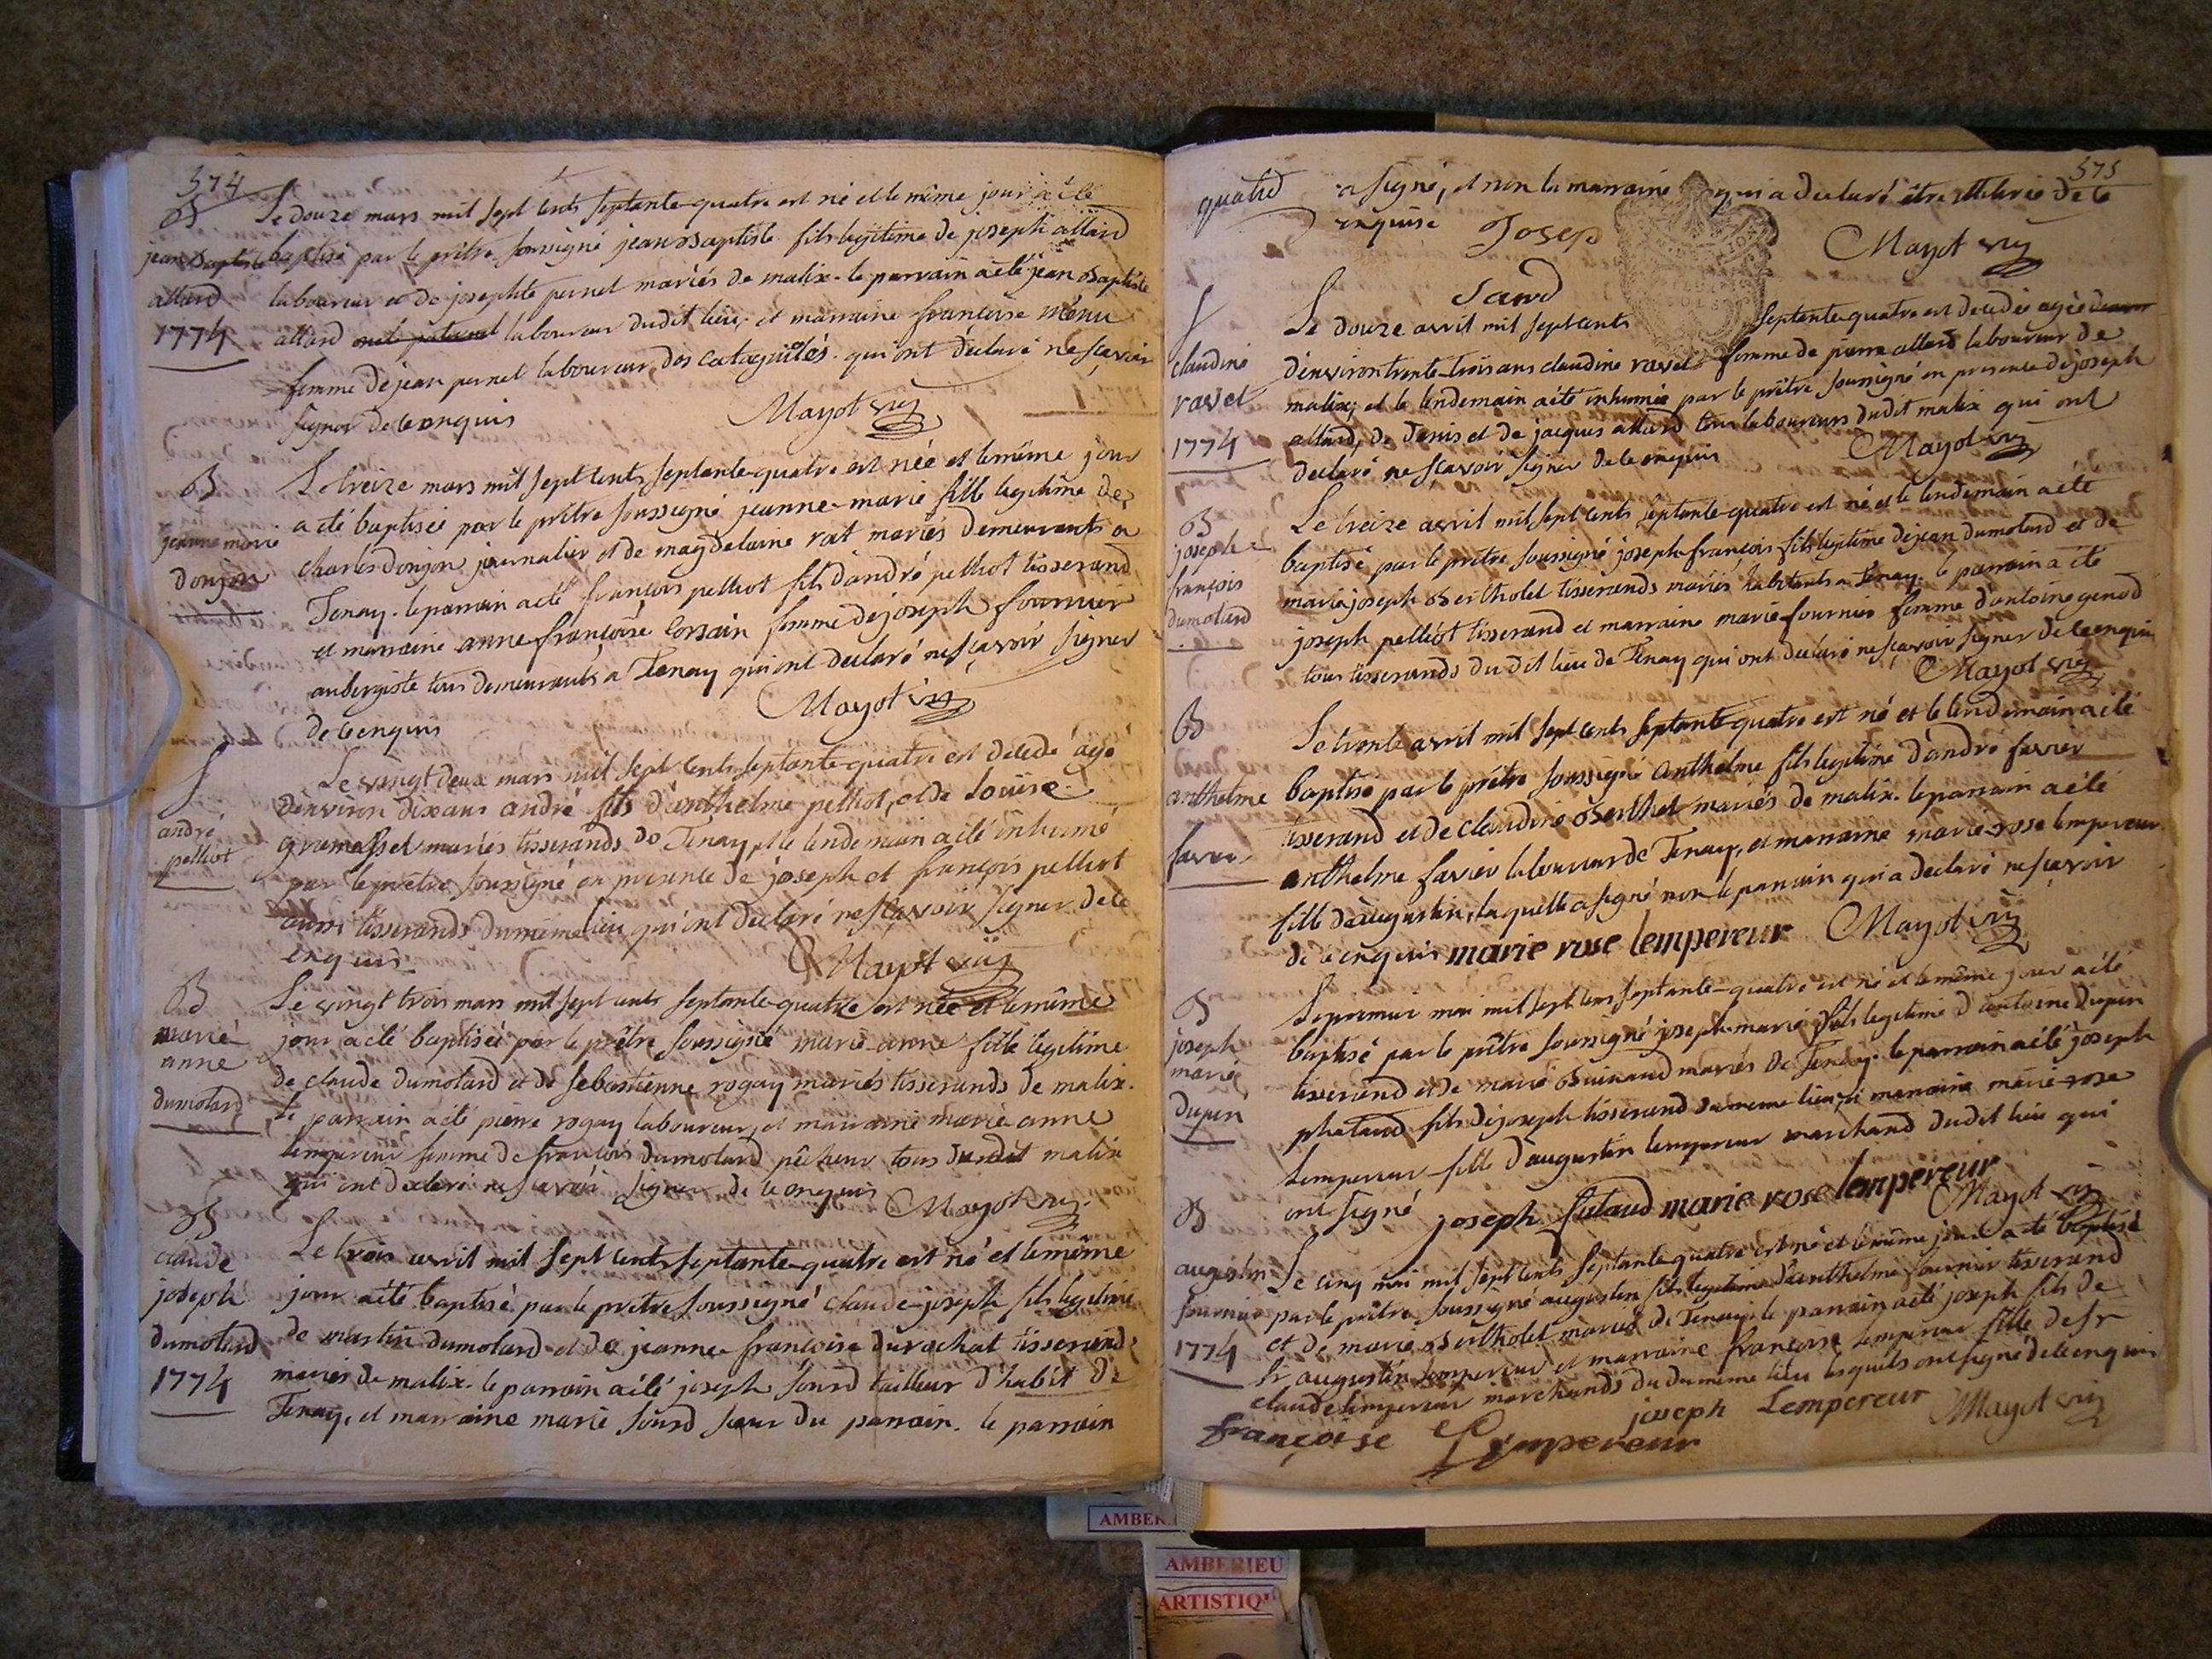 574
B
jean Baptiste
allard
1774
Le douze mars mil sept cents septante-quatre est né et le même jour a été
baptisé par le prêtre soussigné jean Baptiste fils legitime de joseph allard
laboureur et de josephte pernet mariés de malix. le parrain a été jean Baptiste
allard laboureur dudit lieu, et marraine françoise
femme de jean pernet laboureur des qui ont déclaré ne sçavoir
signer de ce enquis Mayot vic
B
jeanne marie
donjon
Le treize mars mil sept cents septante-quatre est née et le même jour
a été baptisée par le prêtre soussigné jeanne-marie fille legitime de
charles donjon journalier et de magdelaine rat mariés demeurants a
Tenay. le parrain a été françois pelliot fils d'andré pelliot tisserand
et marraine anne françoise femme de joseph fournier
aubergiste tous demeurants a Tenay qui ont declaré ne sçavoir signer
de ce enquis Mayot vic
S
andré
pelliot
Le vingt deux mars mil sept cents septante-quatre est décédé agé
d'environ dix ans andré fils d'anthelme pelliot, et de Louise
gramusset mariés tisserands de Tenay, et le lendemain a été inhumé
par le prêtre soussigné en presence de joseph et françois pelliot
aussi tisserands du même lieu qui ont declaré ne sçavoir signer de ce
enquis Mayot vic
B
marie
anne
dumolard
Le vingt trois mars mil sept cents septante-quatre est née et le même
jour a été baptisée par le prêtre soussigné marie-anne fille legitime
de claude dumolard et de sebastienne rogay mariés tisserands de malix.
le parrain a été pierre rogay laboureur, et marraine marie anne
lempereur femme de françois dumolard pêcheur tous dudit malix
qui ont declaré ne sçavoir signer de ce enquis Mayot vic
B
claude
joseph
dumolard
1774
Le trois avril mil sept cents septante-quatre est né et le même
jour a été baptisé par le prêtre soussigné claude-joseph fils legitime
de martin dumolard et de jeanne-françoise durochat tisserands
mariés de malix. le parrain a été joseph Savd tailleur d'habit de
Tenay, et marraine marie Savd sœur du parrain. le parrain
575
a signé, et non la marraine qui a declaré être illiterée de ce
enquise Josep Savd Mayot vic
S
claudine
ravet
1774
Le douze avril mil sept cents septante-quatre est decedée agée
d'environ trente-trois ans claudine ravet femme de pierre allard laboureur de
malix, et le lendemain a été inhumée par le prêtre soussigné en presence de joseph
allard, de Denis et de jacques allard tous laboureurs dudit malix qui ont
declaré ne sçavoir signer de ce enquis Mayot vic
B
joseph
françois
dumolard
Le treize avril mil sept cents septante-quatre est né et le lendemain a été
baptisé par le prêtre soussigné joseph-françois fils legitime de jean dumolard et de
marie joseph Bertholet tisserands mariés habitants a Tenay. le parrain a été
joseph pelliot tisserand et marraine marie fournier femme d'antoine genod
tous tisserands du dit lieu de Tenay qui ont declaré ne sçavoir signer de ce enquis
Mayot vic
B
anthelme
favier
Le trente avril mil sept cents septante-quatre est né et le lendemain a été
baptisé par le prêtre soussigné anthelme fils legitime d'andré favier
tisserand et de claudine Berthet mariés de malix. le parrain a été
anthelme favier laboureur de Tenay, et marraine marie-rose lempereur
fille d'augustin, laquelle a signé non le parrain qui a declaré ne sçavoir
de ce enquis marie rose lempereur Mayot vic
B
joseph
marie
dupin
Le premier mai mil sept cents septante-quatre est né et le même jour a été
baptisé par le prêtre soussigné joseph-marie fils legitime d'antoine dupin
tisserand et de marie mariés de Tenay. le parrain a été joseph
fils de joseph tisserand du meme lieu, et marraine marie-rose
Lempereur fille d'augustin lempereur marchand dudit lieu qui
ont signé joseph marie rose lempereur
Mayot vic
B
augustin
fournier
1774
Le cinq mai mil sept cents septante-quatre est né et le même jour a été baptisé
par le prêtre soussigné augustin fils legitime d'anthelme fournier tisserand
et de marie Bertholet mariés de Tenay. le parrain a été joseph fils de
Sr augustin lempereur et marraine françoise lempereur fille de Sr
claude lempereur marchands du dumême lieu lesquels ont signé de ce enquis
joseph Lempereur Mayot vic
françoise Lempereur
AMBERIEU
ARTISTIQ